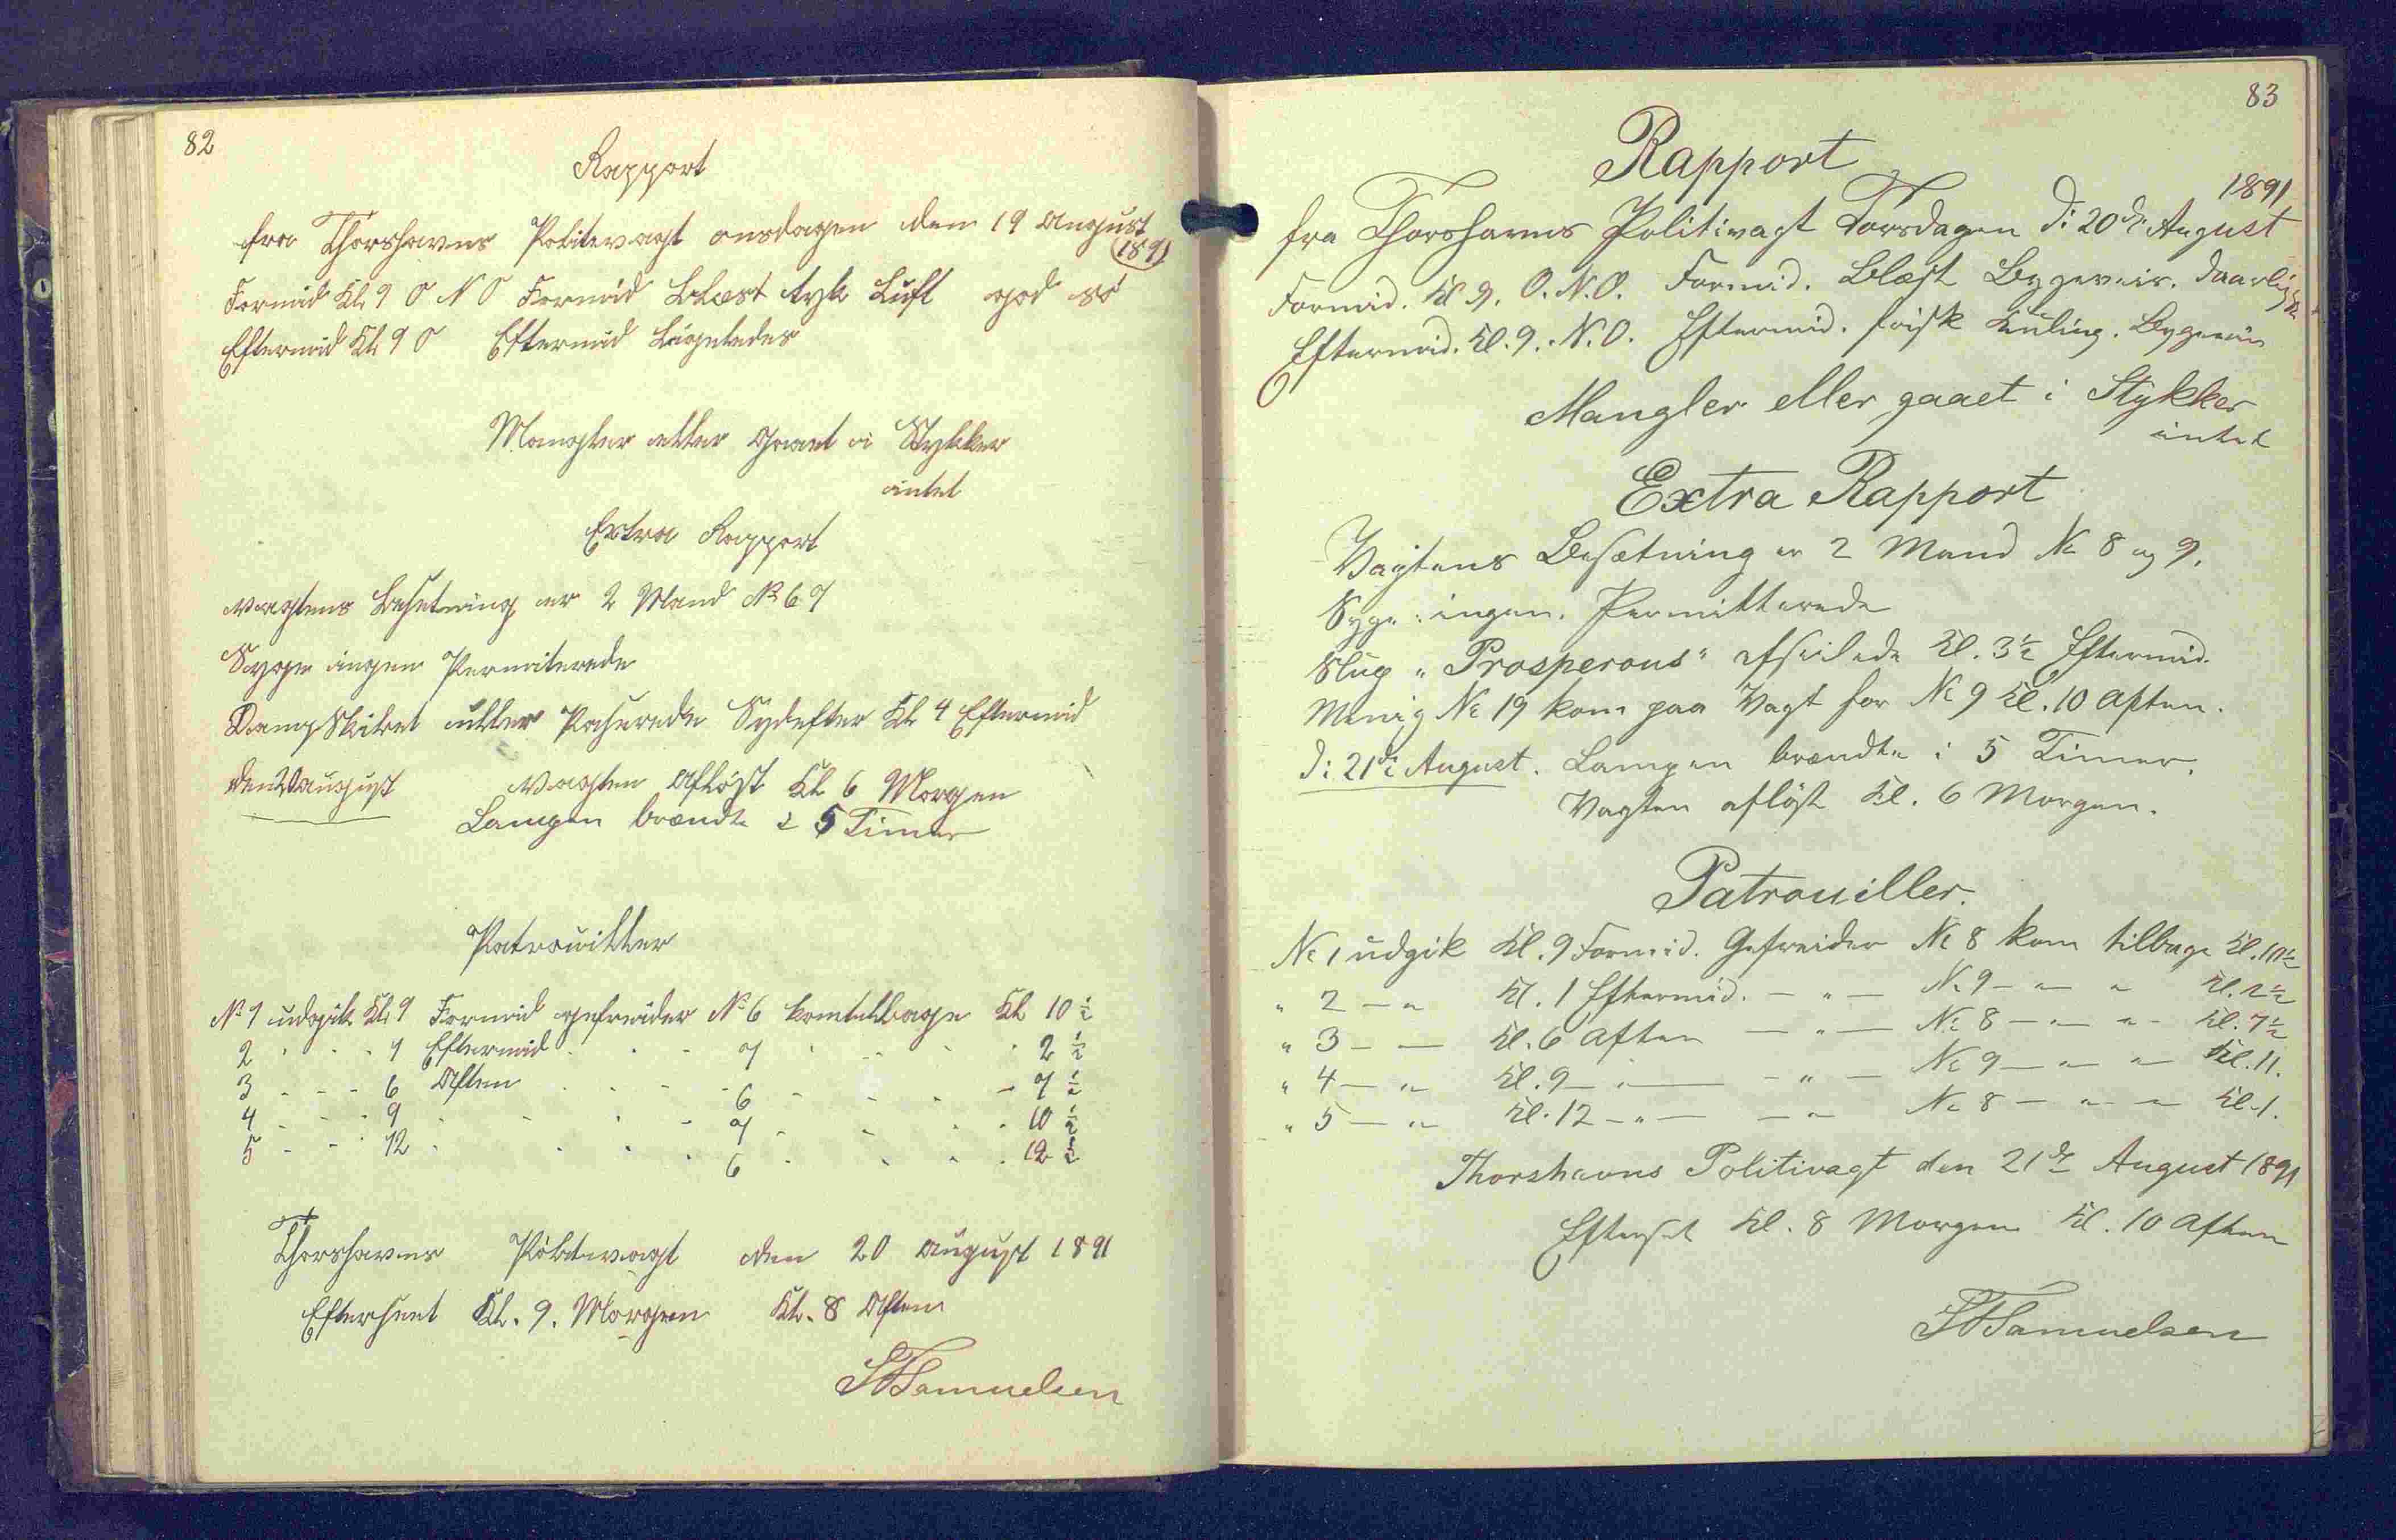 82
Rapport
fra Thorshavns Politivagt onsdagen den 19 August
1891
Formid Kl 9 O N O Formid Blæst tyk Luft god sö
Eftermid Kl 9 O Eftermid Ligeledes
Mangler eller Gaaet i Stykker
intet
Extra Rapport
vagtens Besetning er 2 Mand No 6 7
Syge ingen Permiterede
Damp Skibet Paserede Sydefter Kl 4 Eftermid
den 20 august vagten Afløst Kl 6 Morgen
Lampen brændte i 5 Timer
Patrouiller
No 1 udgik Kl 9 Formid gefreider No 6 kom tilbage Kl 10 ½
2 - - - 1 Eftermid - - - 7 - - - - 2 ½
3 - - - 6 Aften - - - 6 - - - - 7 ½
4 - - - 9 - - - - 7 - - - - 10 ½
5 - - - 12 - - - - 6 - - - - 12 ½
Thorshavns Politivagt den 20 august 1891
Efterseet Kl. 9. Morgen Kl. 8 Aften
Samuelsen
83
Rapport
1891
fra Thorshavns Politivagt Torsdagen d: 20de August
Formid. Kl 9. O.N.O. Formid. Blæst Bygeveir. daarlig
Eftermid. Kl. 9. N.O. Eftermid. frisk Kuling. Bygeveir
Mangler eller gaaet i Stykker
intet
Extra Rapport
Vagtens Besætning er 2 Mand No 8 og 9.
Syge: ingen. Permitterede
Slup "Prosperous" afseilede Kl. 3½ Eftermid.
Menig No 19 kom paa Vagt for No 9 Kl. 10 Aften.
d: 21de August. Lampen brændte i 5 Timer.
Vagten afløst Kl. 6 Morgen.
Patrouiller.
No 1 udgik Kl. 9 Formid. Gefreider No 8 kom tilbage Kl. 10½
" 2 — " Kl. 1 Eftermid. — " — No 9 — " — " Kl. 2½
" 3 — — Kl. 6 Aften — " — No 8 — " — " — Kl. 7½
" 4 — " Kl. 9 — " — — " — No 9 — " — " — Kl. 11.
" 5 — " Kl. 12 — " — — " No 8 — " — " — Kl. 1.
Thorshavns Politivagt den 21de August 1891
Efterset Kl. 8 Morgen Kl. 10 Aften
Samuelsen